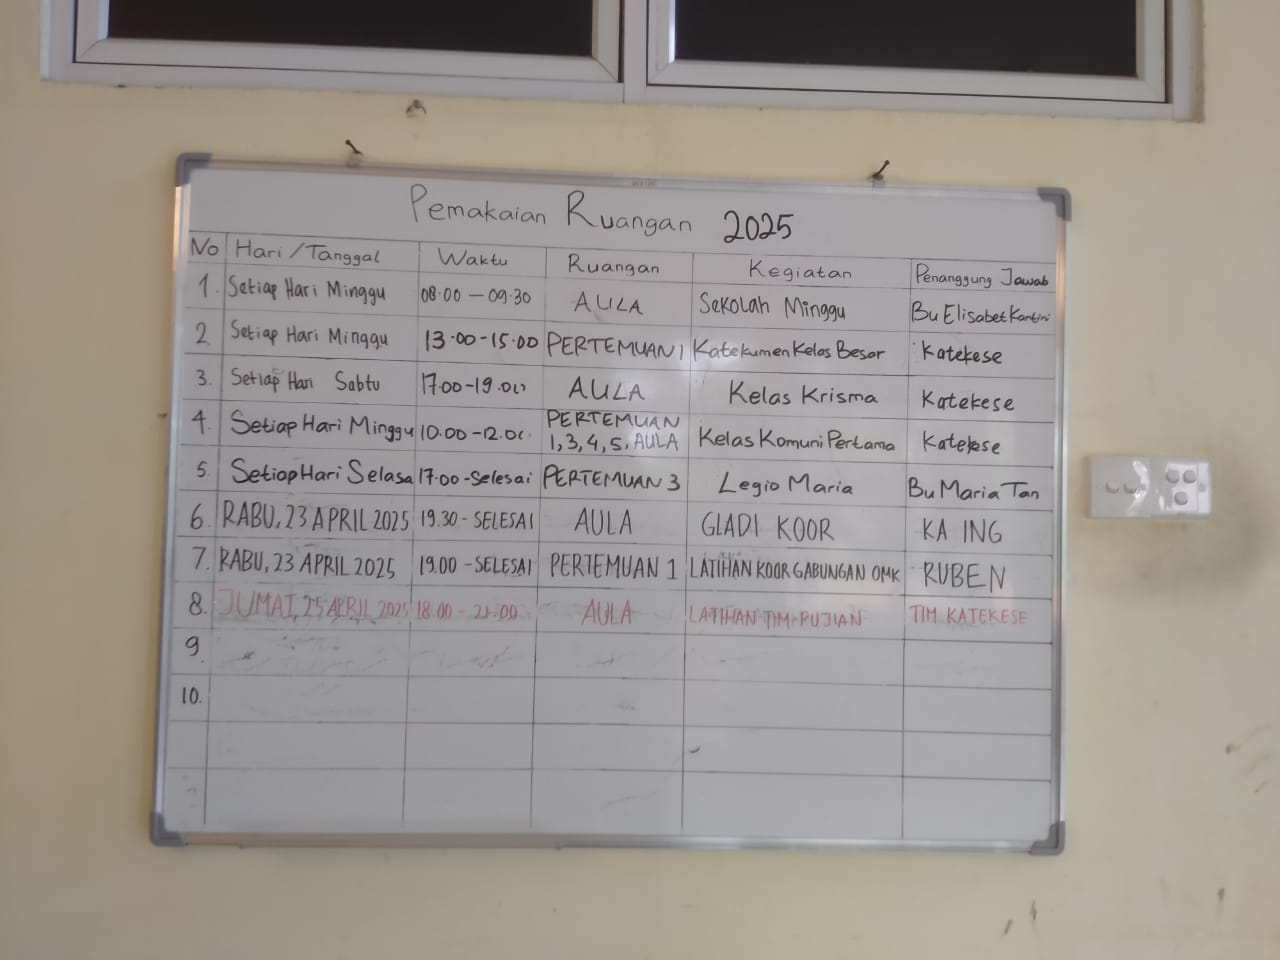 Pemakaian Ruangan 2025
No Hari/Tanggal Waktu Ruangan Kegiatan Penanggung Jawab
1. Setiap Hari Minggu 08.00 - 09.30 AULA Sekolah Minggu Bu Elisabet Kartini
2. Setiap Hari Minggu 13.00-15.00 PERTEMUAN 1 Katekumen Kelas Besar Katekese
3. Setiap Hari Sabtu 17.00-19.00 AULA Kelas Krisma Katekese
4. Setiap Hari Minggu 10.00-12.00 PERTEMUAN
1,3,4,5, AULA Kelas Komuni Pertama Katekese
5. Setiap Hari Selasa 17.00-Selesai PERTEMUAN 3 Legio Maria Bu Maria Tan
6. RABU, 23 APRIL 2025 19.30 - SELESAI AULA GLADI KOOR KA ING
7. RABU, 23 APRIL 2025 19.00 - SELESAI PERTEMUAN 1 LATIHAN KOOR GABUNGAN OMK RUBEN
8. JUMAT, 25 APRIL 2025 18.00 - 21.00 AULA LATIHAN TIM PUJIAN TIM KATEKESE
9.
10.